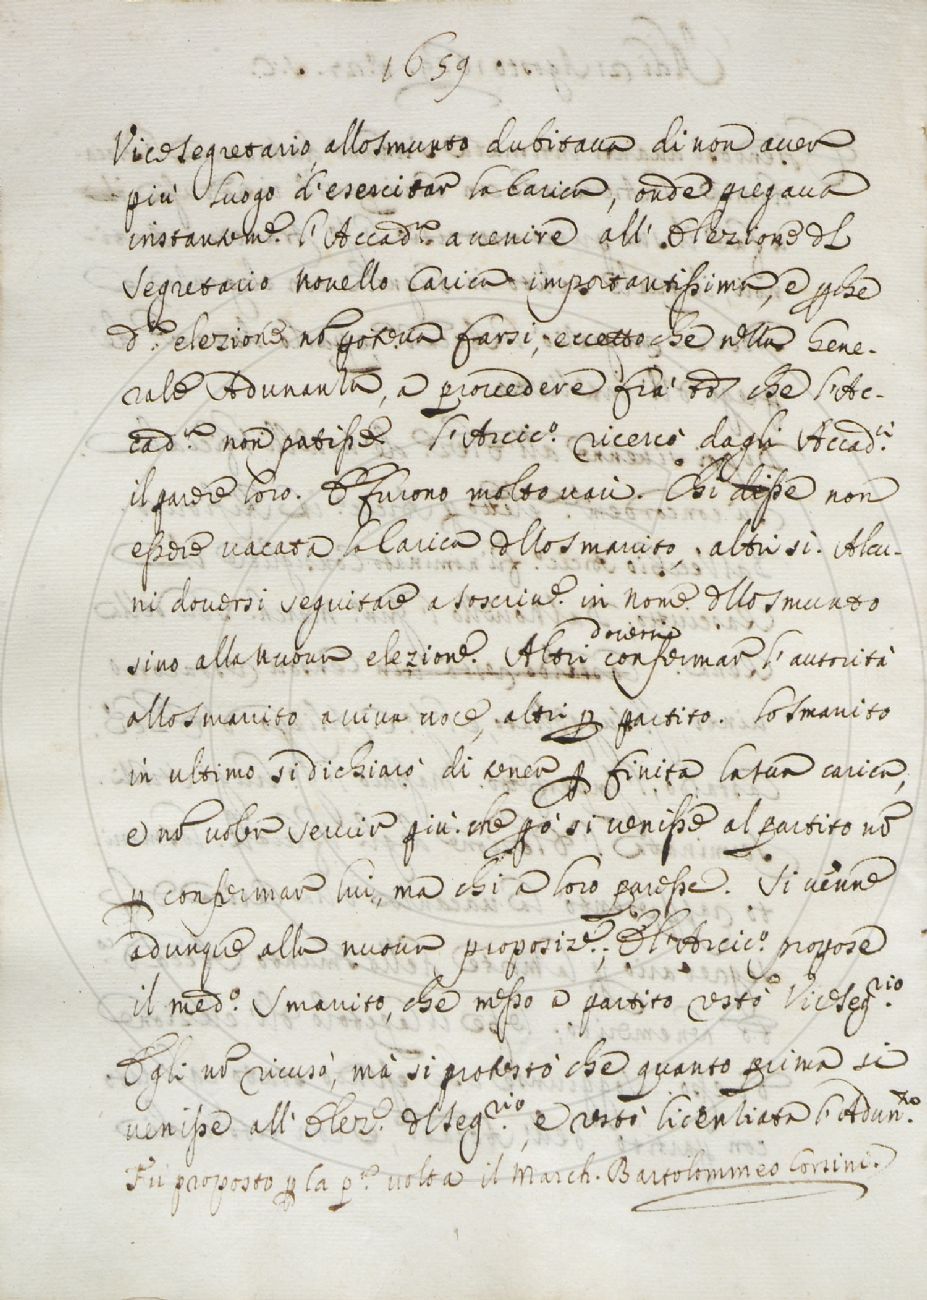 1659
Vicesegretario, allo Smunto dubitava di non aver
più luogo d'esercitar la Carica, onde pregava
instantem.e l'Accad.ia a venire all'Elezione del
Segretario novello Carica importantissima, e perche
d.a elezione nõ poteva farsi, eccetto che nella Gene-
rale Adunanza, a provvedere fra tãto che l'Ac-
cad.ia non patisse. L'Arcic.o ricercò dagli Accad.ci
il parere loro. E furono molto varii. Chi disse non
essere vacata la Carica dello Smarrito, altri si. Alcu-
ni doversi seguitare a soscriver.e in nome dello Smunto
sino alla nuova elezione. Altri doversi confermar l'autorità
allo Smarrito a viva voce, altri p partito. Lo Smarrito
in ultimo si dichiarò di tener p finita la sua carica,
e nõ voler servir più. che pò si venisse al partito nõ
p confermar lui, ma chi a loro paresse. Si venne
adunque alla nuova proposiz.e, E l'Arcic.o propose
il med.o Smarrito, che messo a partito restò Viceseg.rio
Egli nõ ricusò, mà si protestò che quanto prima si
venisse all'Elez.e del Seg.rio, e restò licenziata l'Adun.za
Fù proposto p la p.a volta il March. Bartolommeo Corsini.